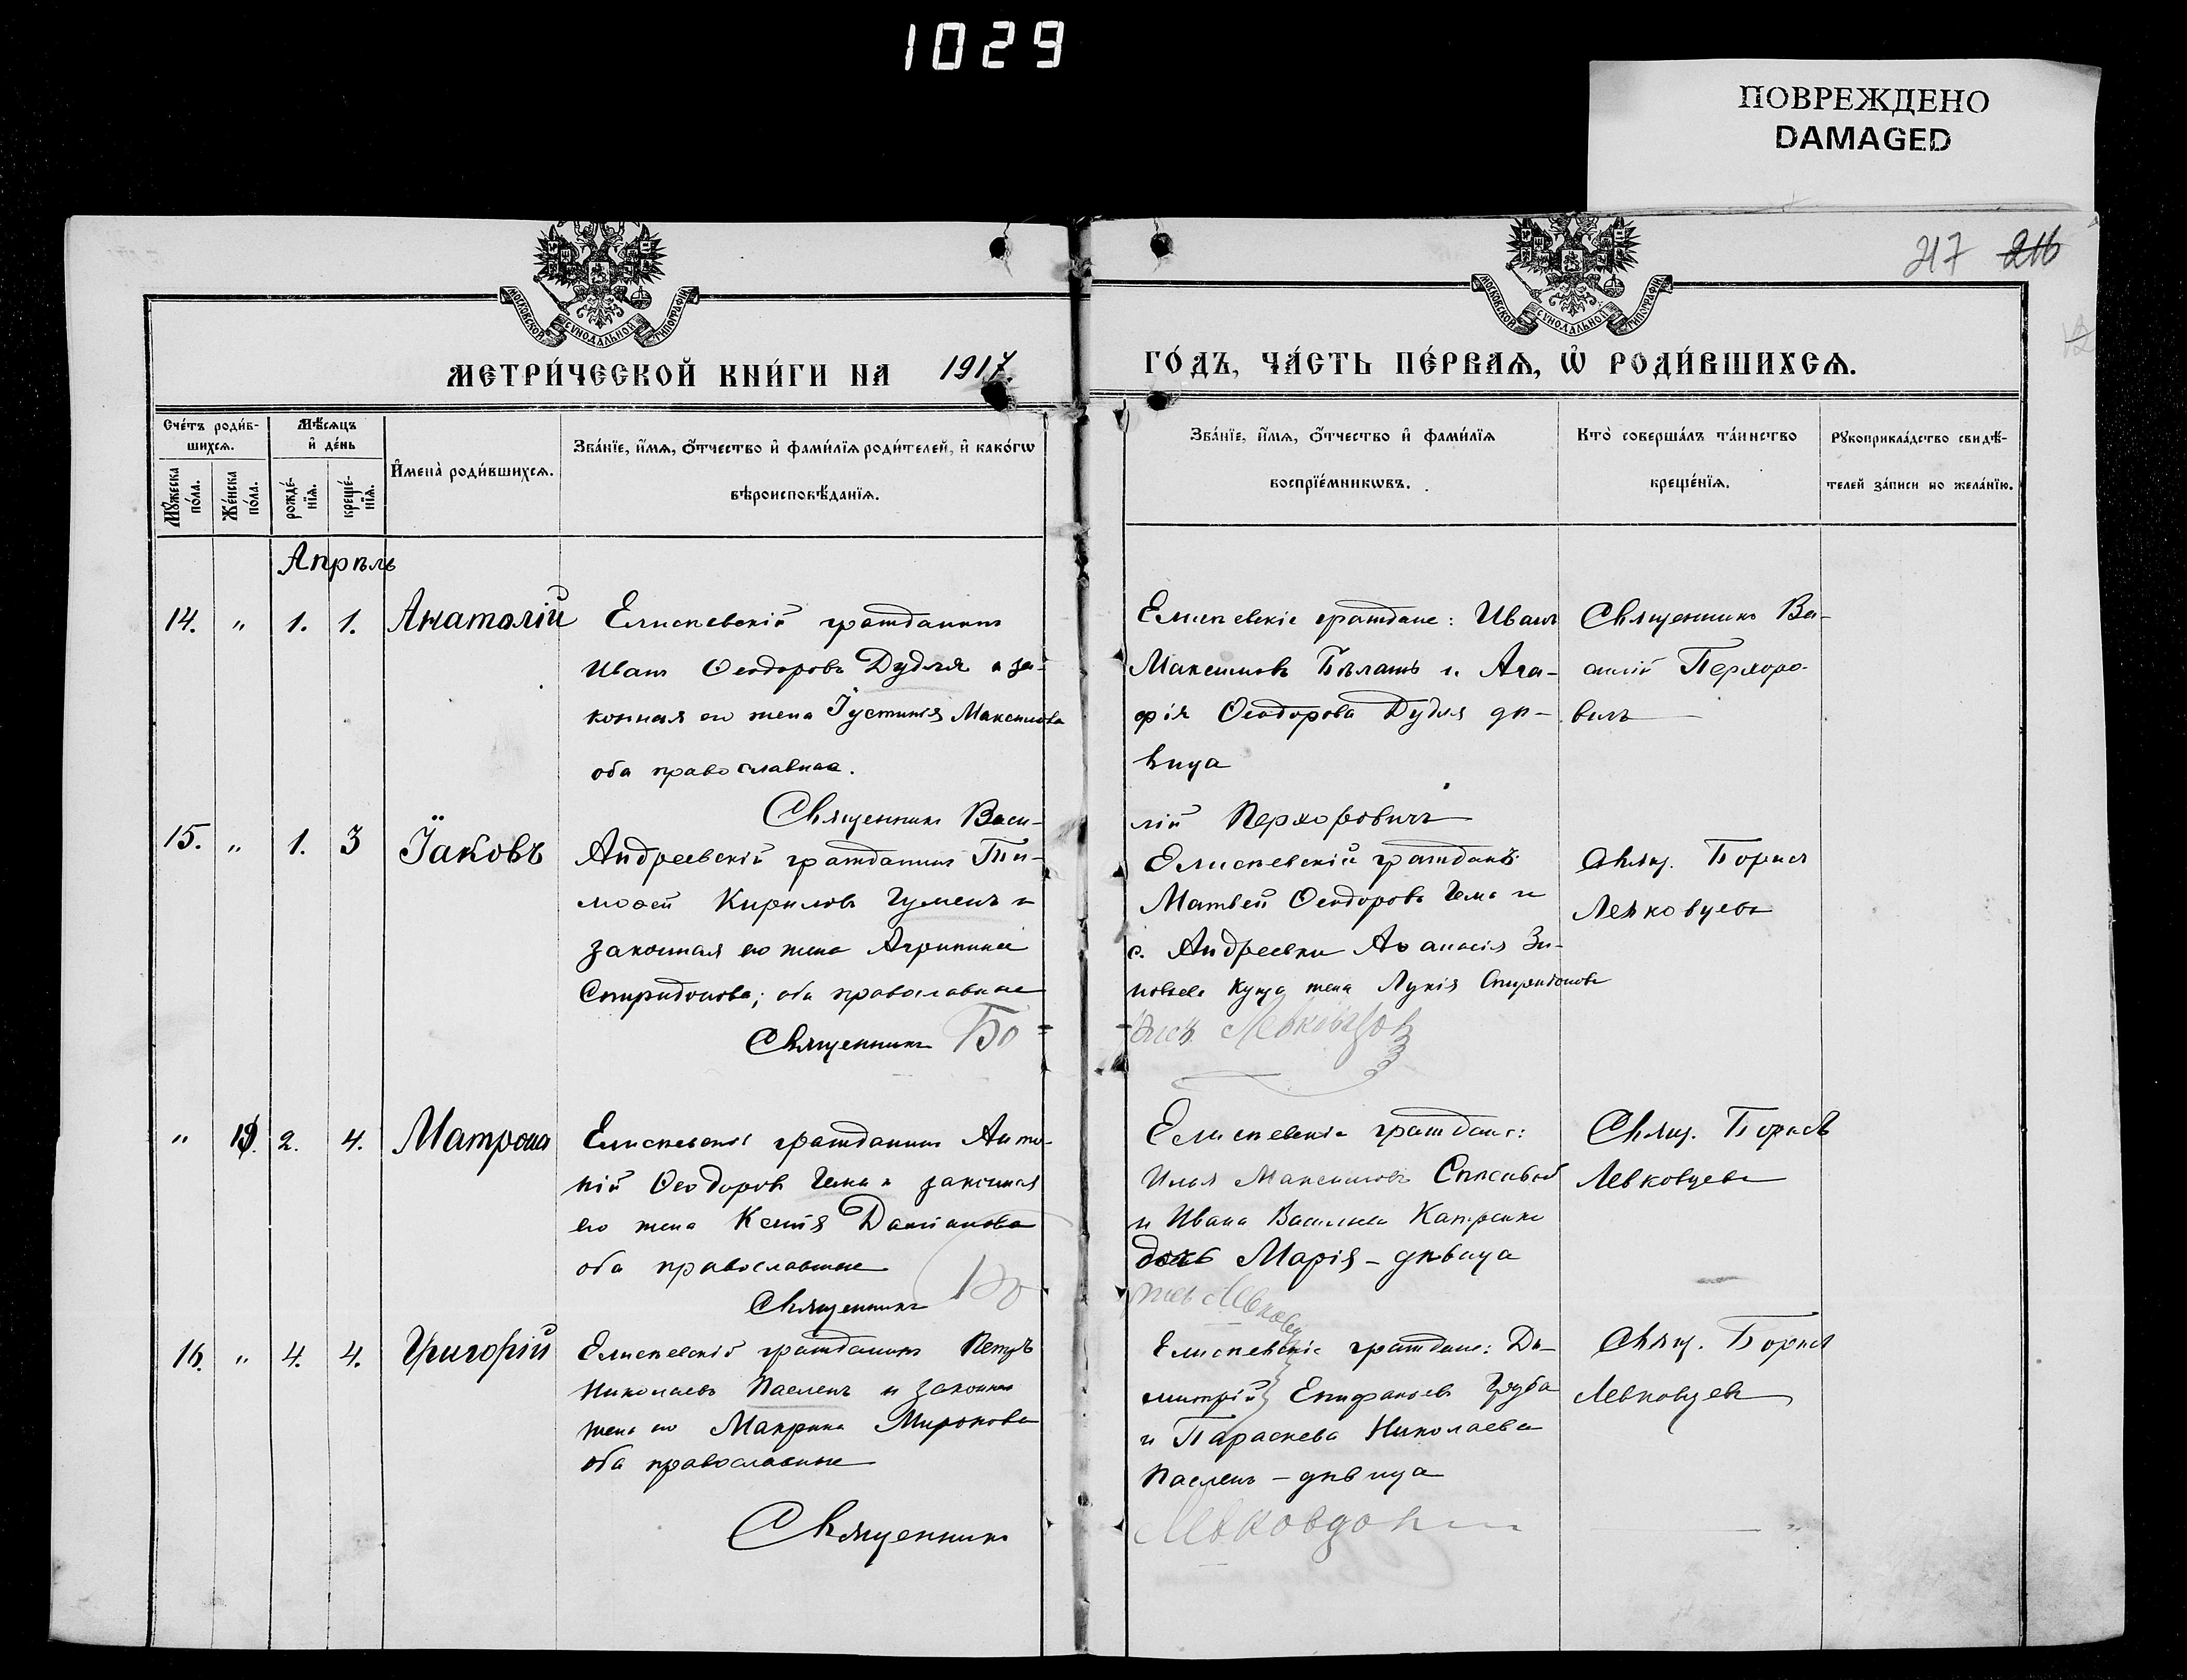 1029
ПОВРЕЖДЕНО
DAMAGED
217 216
МОСКОВСКОЙ СѴНОДАЛЬНОЙ ТИПОГРАФІИ
МОСКОВСКОЙ СѴНОДАЛЬНОЙ ТИПОГРАФІИ
МЕТРИ́ЧЕСКОЙ КНИ́ГИ НА 1917.
ГО́ДЪ, ЧА́СТЬ ПЕ́РВАѦ, Ѡ҆ РОДИ́ВШИХСѦ.
Сче́тъ роди́в-
шихсѧ.
Мꙋ́жеска по́ла.
Же́нска по́ла.
Мѣ́сѧцъ и҆ де́нь
рожде́-
нїѧ.
креще́-
нїѧ.
И҆мена̀ роди́вшихсѧ.
Зва́нїе, и҆́мѧ, ѻ҆́тчество и҆ фами́лїѧ роди́телей, и҆ како́гѡ
вѣроисповѣ́данїѧ.
Зва́нїе, и҆́мѧ, ѻ҆́тчество и҆ фами́лїѧ
воспрїе́мникѡвъ.
Кто̀ соверша́лъ та́инство
креще́нїѧ.
Рꙋкоприкла́дство свидѣ́-
телей за́писи по жела́нїю.
Апрѣль
14. " 1. 1. Анатолій
Елисѣевскій гражданинъ
Иванъ Ѳеодоровъ Дудля и за-
конная его жена Іустинія Максимова
оба православнаа.
Священникъ Васи-
Елисѣевскіе граждане: Иванъ
Максимовъ Бѣлашъ и Ага-
фія Ѳеодорова Дудля дѣ-
вица
лій Перхоровичъ
Священникъ Ва-
силій Перхоро-
вичъ
15. " 1. 3 Іаковъ
Андреевскій гражданинъ Ти-
моѳей Кириловъ Гуменъ и
законная его жена Агрипина
Спиридонова; оба православные
Священникъ Бо-
Елисѣевскій гражданъ
Матвей Ѳеодоровъ Гема и
с. Андреевки Аѳанасія Зи-
новьева Куца жена Лукія Спиридонова
рисъ Левковцевъ
Свящ. Борисъ
Левковцевъ
" 19. 2. 4. Матрона
Елисѣевскій гражданинъ Анто-
ній Ѳеодоровъ Гема и законная
его жена Ксенія Даміанова
оба православные
Священникъ Бо
Елисѣевскіе граждане:
Илья Максимовъ Спѣсивый
и Ивана Васильева
дочь Марія - дѣвица
рисъ Левковцевъ
Свящ. Борисъ
Левковцевъ
16. " 4. 4. Григорій
Елисѣевскій гражданинъ Петръ
Николаевъ Пасленъ и законная
жена его Макрина Миронова
оба православные
Священникъ
Елисѣевскіе граждане: Ди-
митрій Епифаніевъ Груба
и Параскева Николаева
Пасленъ - дѣвица
Левковцевъ
Свящ. Борисъ
Левковцевъ